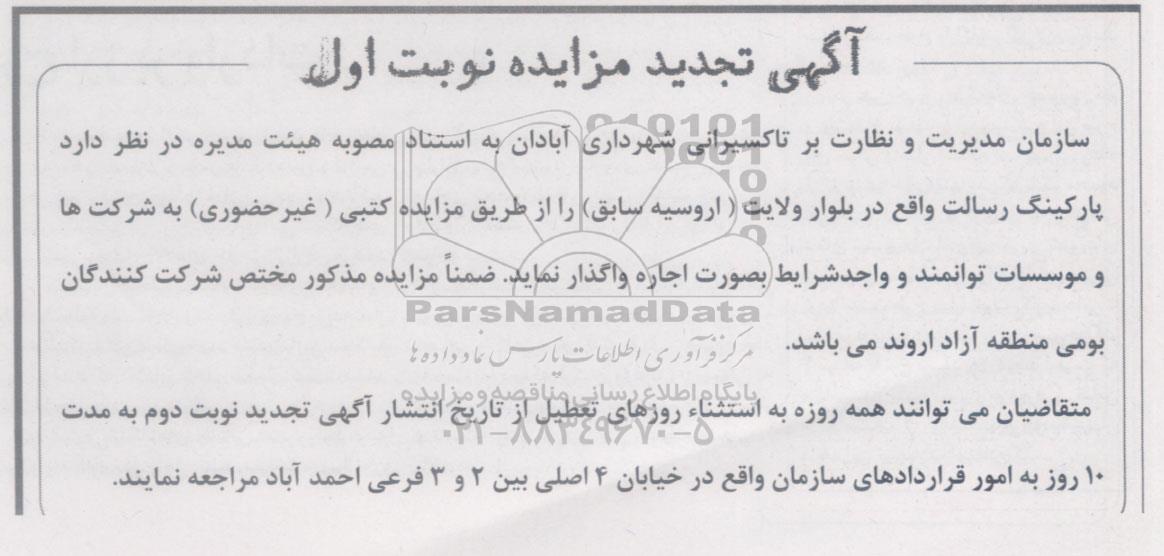 آگهی تجدید مزایده نوبت اول
سازمان مدیریت و نظارت بر تاکسیرانی شهرداری آبادان به استناد مصوبه هیئت مدیره در نظر دارد
پارکینگ رسالت واقع در بلوار ولایت ( اروسیه سابق) را از طریق مزایده کتبی ( غیرحضوری) به شرکت ها
و موسسات توانمند و واجدشرایط بصورت اجاره واگذار نماید. ضمناً مزایده مذکور مختص شرکت کنندگان
ParsNamadData
بومی منطقه آزاد اروند می باشد.
مرکز فرآوری اطلاعات پارس نماد داده ها
پایگاه اطلاع رسانی مناقصه و مزایده
متقاضیان می توانند همه روزه به استثناء روزهای تعطیل از تاریخ انتشار آگهی تجدید نوبت دوم به مدت
۰۲۱-۸۸۳۴۹۶۷۰-۵
۱۰ روز به امور قراردادهای سازمان واقع در خیابان ۴ اصلی بین ۲ و ۳ فرعی احمد آباد مراجعه نمایند.